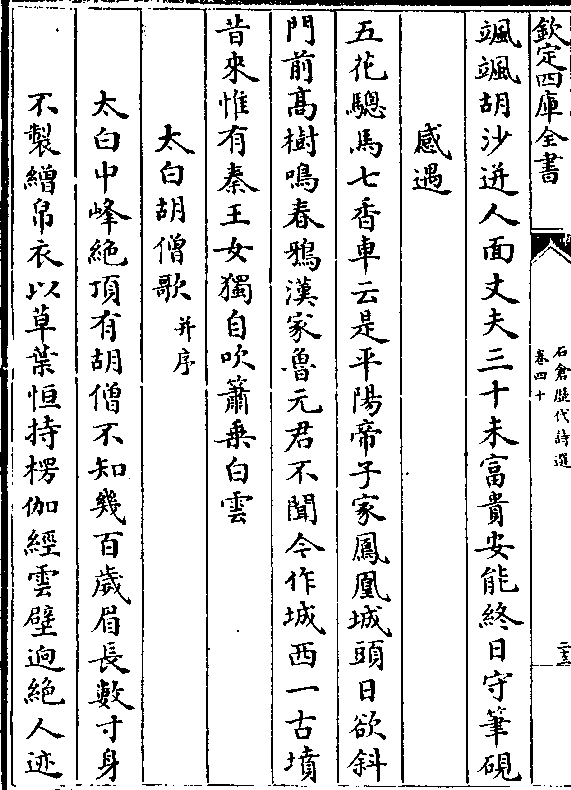 欽定四庫全書
石倉歷代詩選
卷四十
二十五
颯颯胡沙迸人面丈夫三十未富貴安能終日守筆硯
感遇
五花驄馬七香車云是平陽帝子家鳳凰城頭日欲斜
門前髙樹鳴春鴉漢家魯元君不聞今作城西一古墳
昔來惟有秦王女獨自吹簫乗白雲
太白胡僧歌并序
太白中峰絶頂有胡僧不知幾百歳眉長數寸身
不製繒帛衣以草葉恒持楞伽經雲壁逈絶人迹